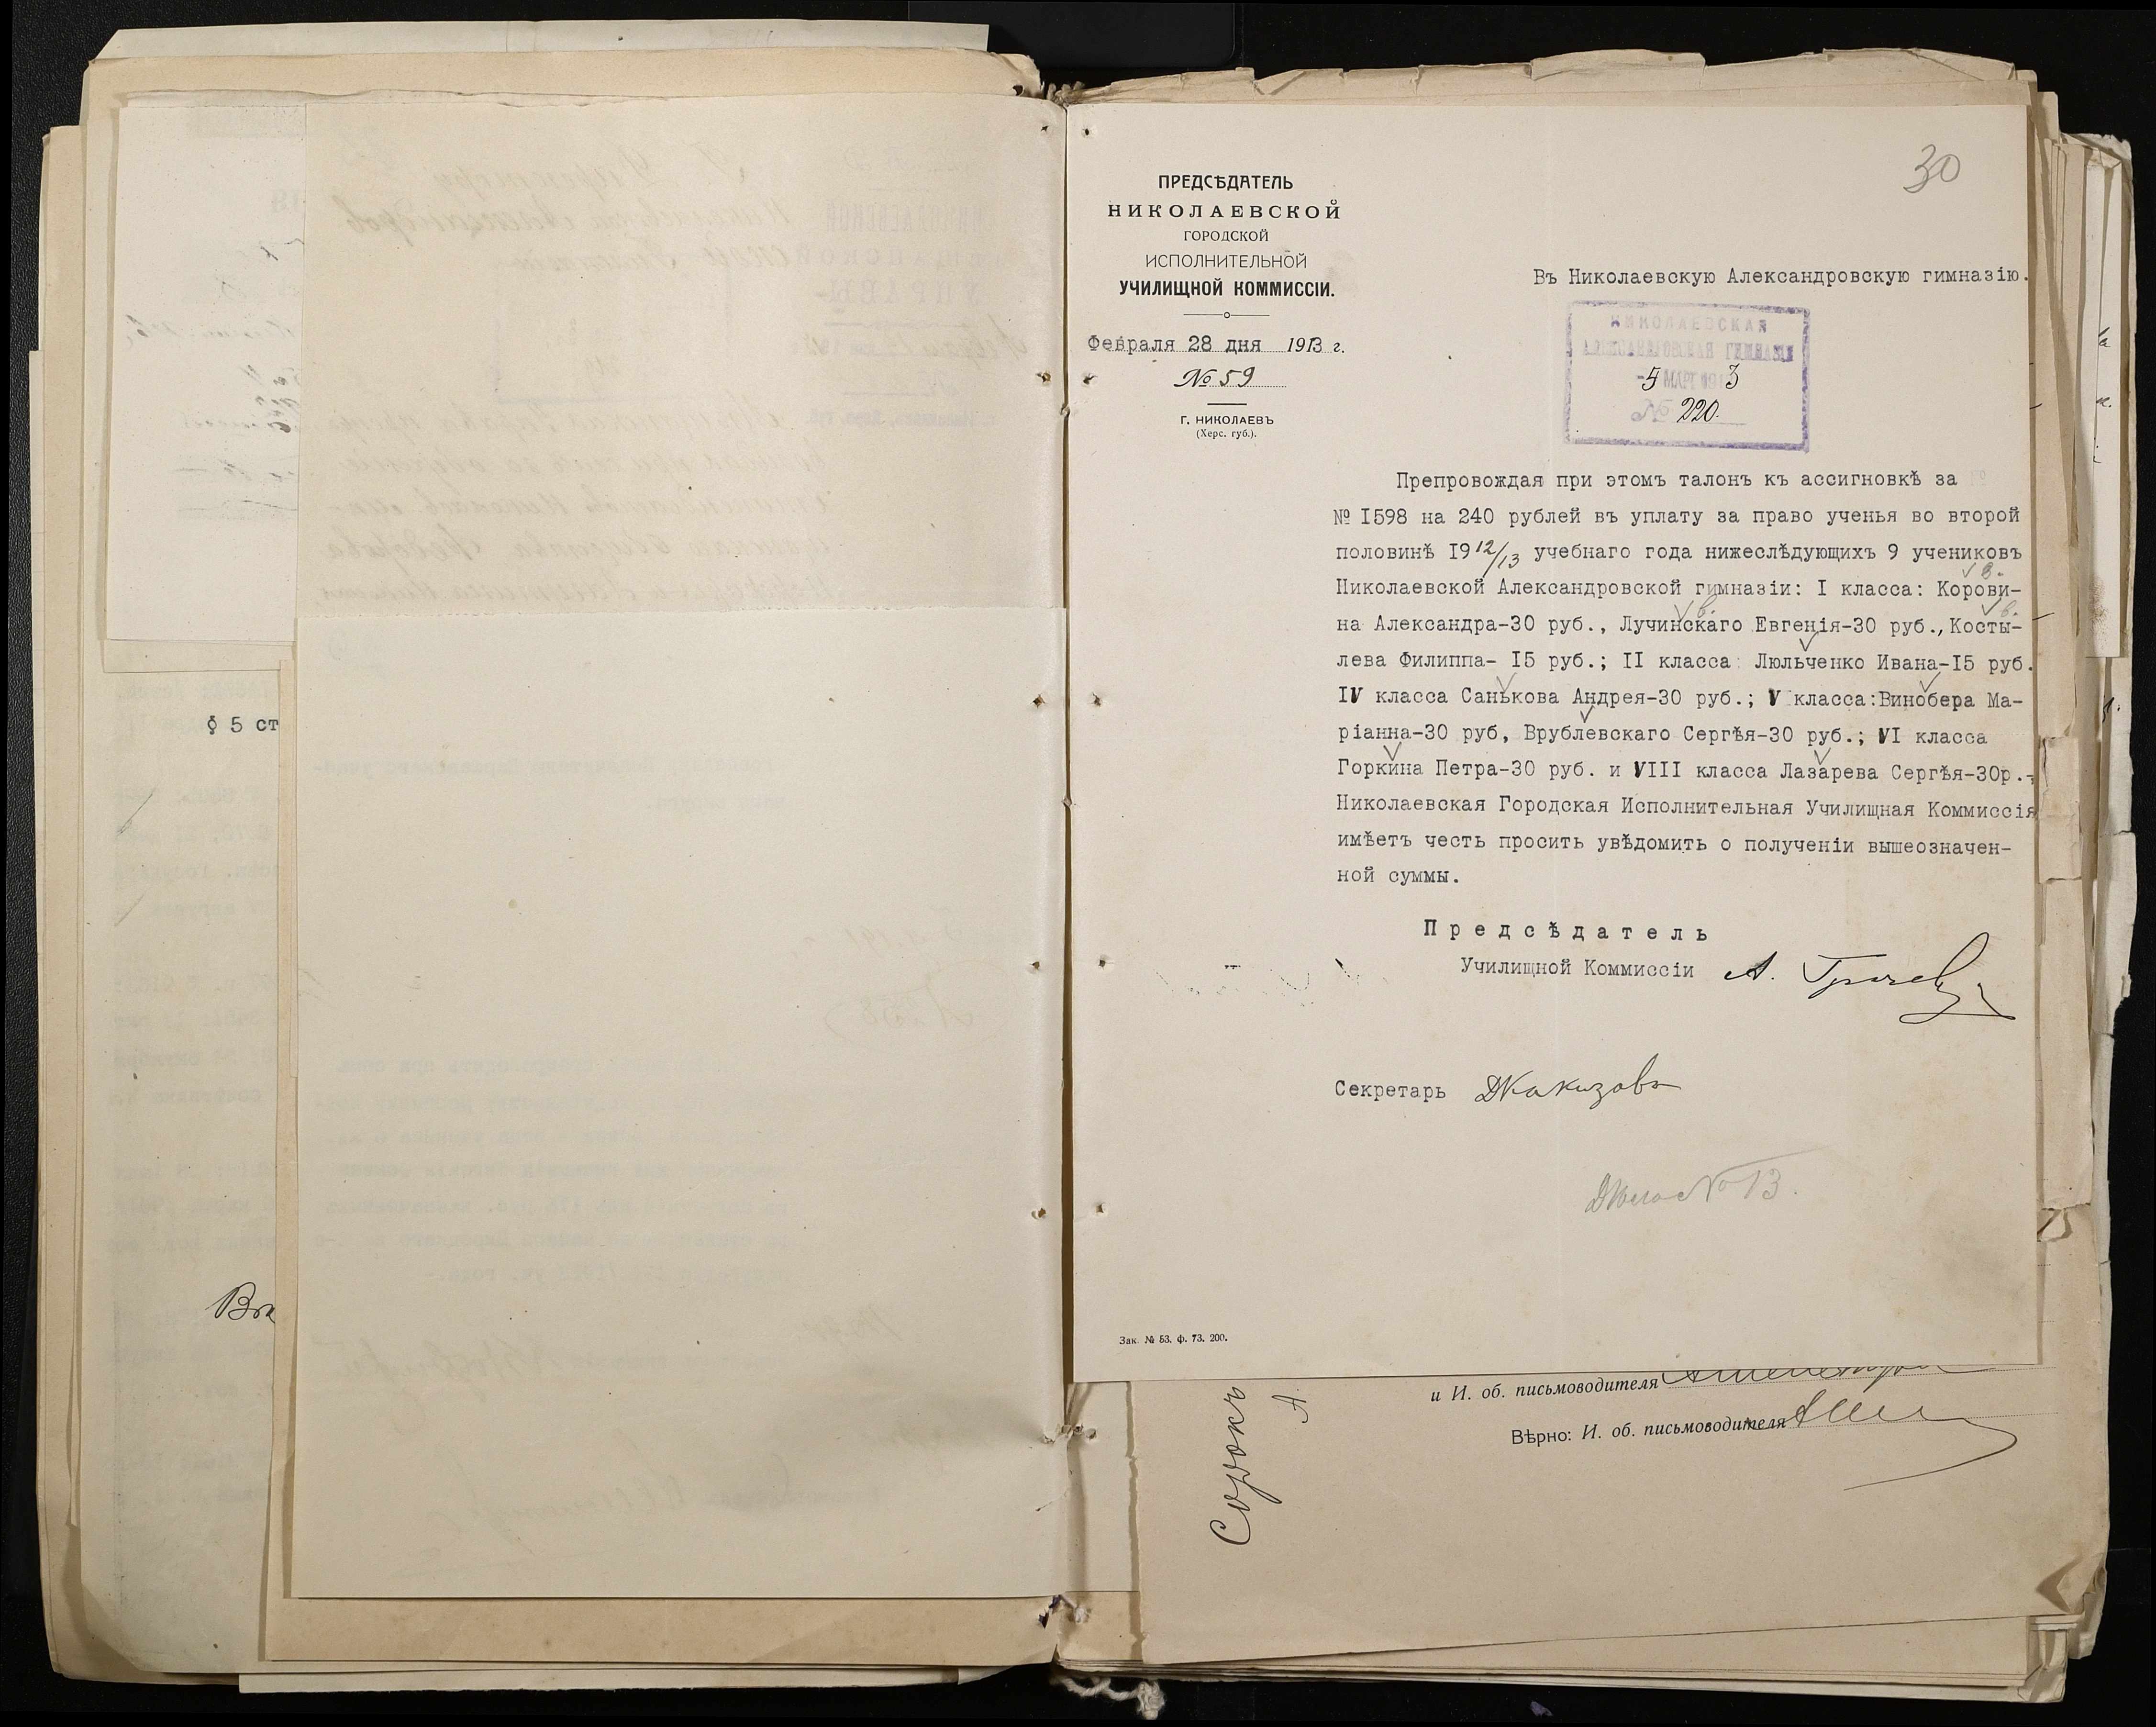 § 5 ст
Вѣ
30
ПРЕДСѢДАТЕЛЬ
НИКОЛАЕВСКОЙ
ГОРОДСКОЙ
ИСПОЛНИТЕЛЬНОЙ
УЧИЛИЩНОЙ КОММИССІИ.
Февраля 28 дня 1913 г.
№ 59
Г. НИКОЛАЕВЪ
(Херс. губ.).
Въ Николаевскую Александровскую гимназію.
НИКОЛАЕВСКАЯ
АЛЕКСАНДРОВСКАЯ ГИМНАЗІЯ
-5 МАРТ 1913
№ 220.
Препровождая при этомъ талонъ къ ассигновкѣ за
№ I598 на 240 рублей въ уплату за право ученья во второй
половинѣ I912/13 учебнаго года нижеслѣдующихъ 9 учениковъ
Николаевской Александровской гимназіи: I класса: Корови-
на Александра-30 руб., Лучинскаго Евгенія-30 руб., Косты-
лева Филиппа- I5 руб.; II класса: Люльченко Ивана-I5 руб.
IV класса Санькова Андрея-30 руб.; V класса:Винобера Ма-
ріанна-30 руб, Врублевскаго Сергѣя-30 руб.; VI класса
Горкина Петра-30 руб. и VIII класса Лазарева Сергѣя-30р.-,
Николаевская Городская Исполнительная Училищная Коммиссія
имѣетъ честь просить увѣдомить о полученіи вышеозначен-
ной суммы.
Предсѣдатель
Училищной Коммиссіи А. Грачевъ
Секретарь
Дѣло № 13.
Зак. № 53. ф. 73. 200.
Сорокъ
А.
и И. об. письмоводителя
Вѣрно: И. об. письмоводителя